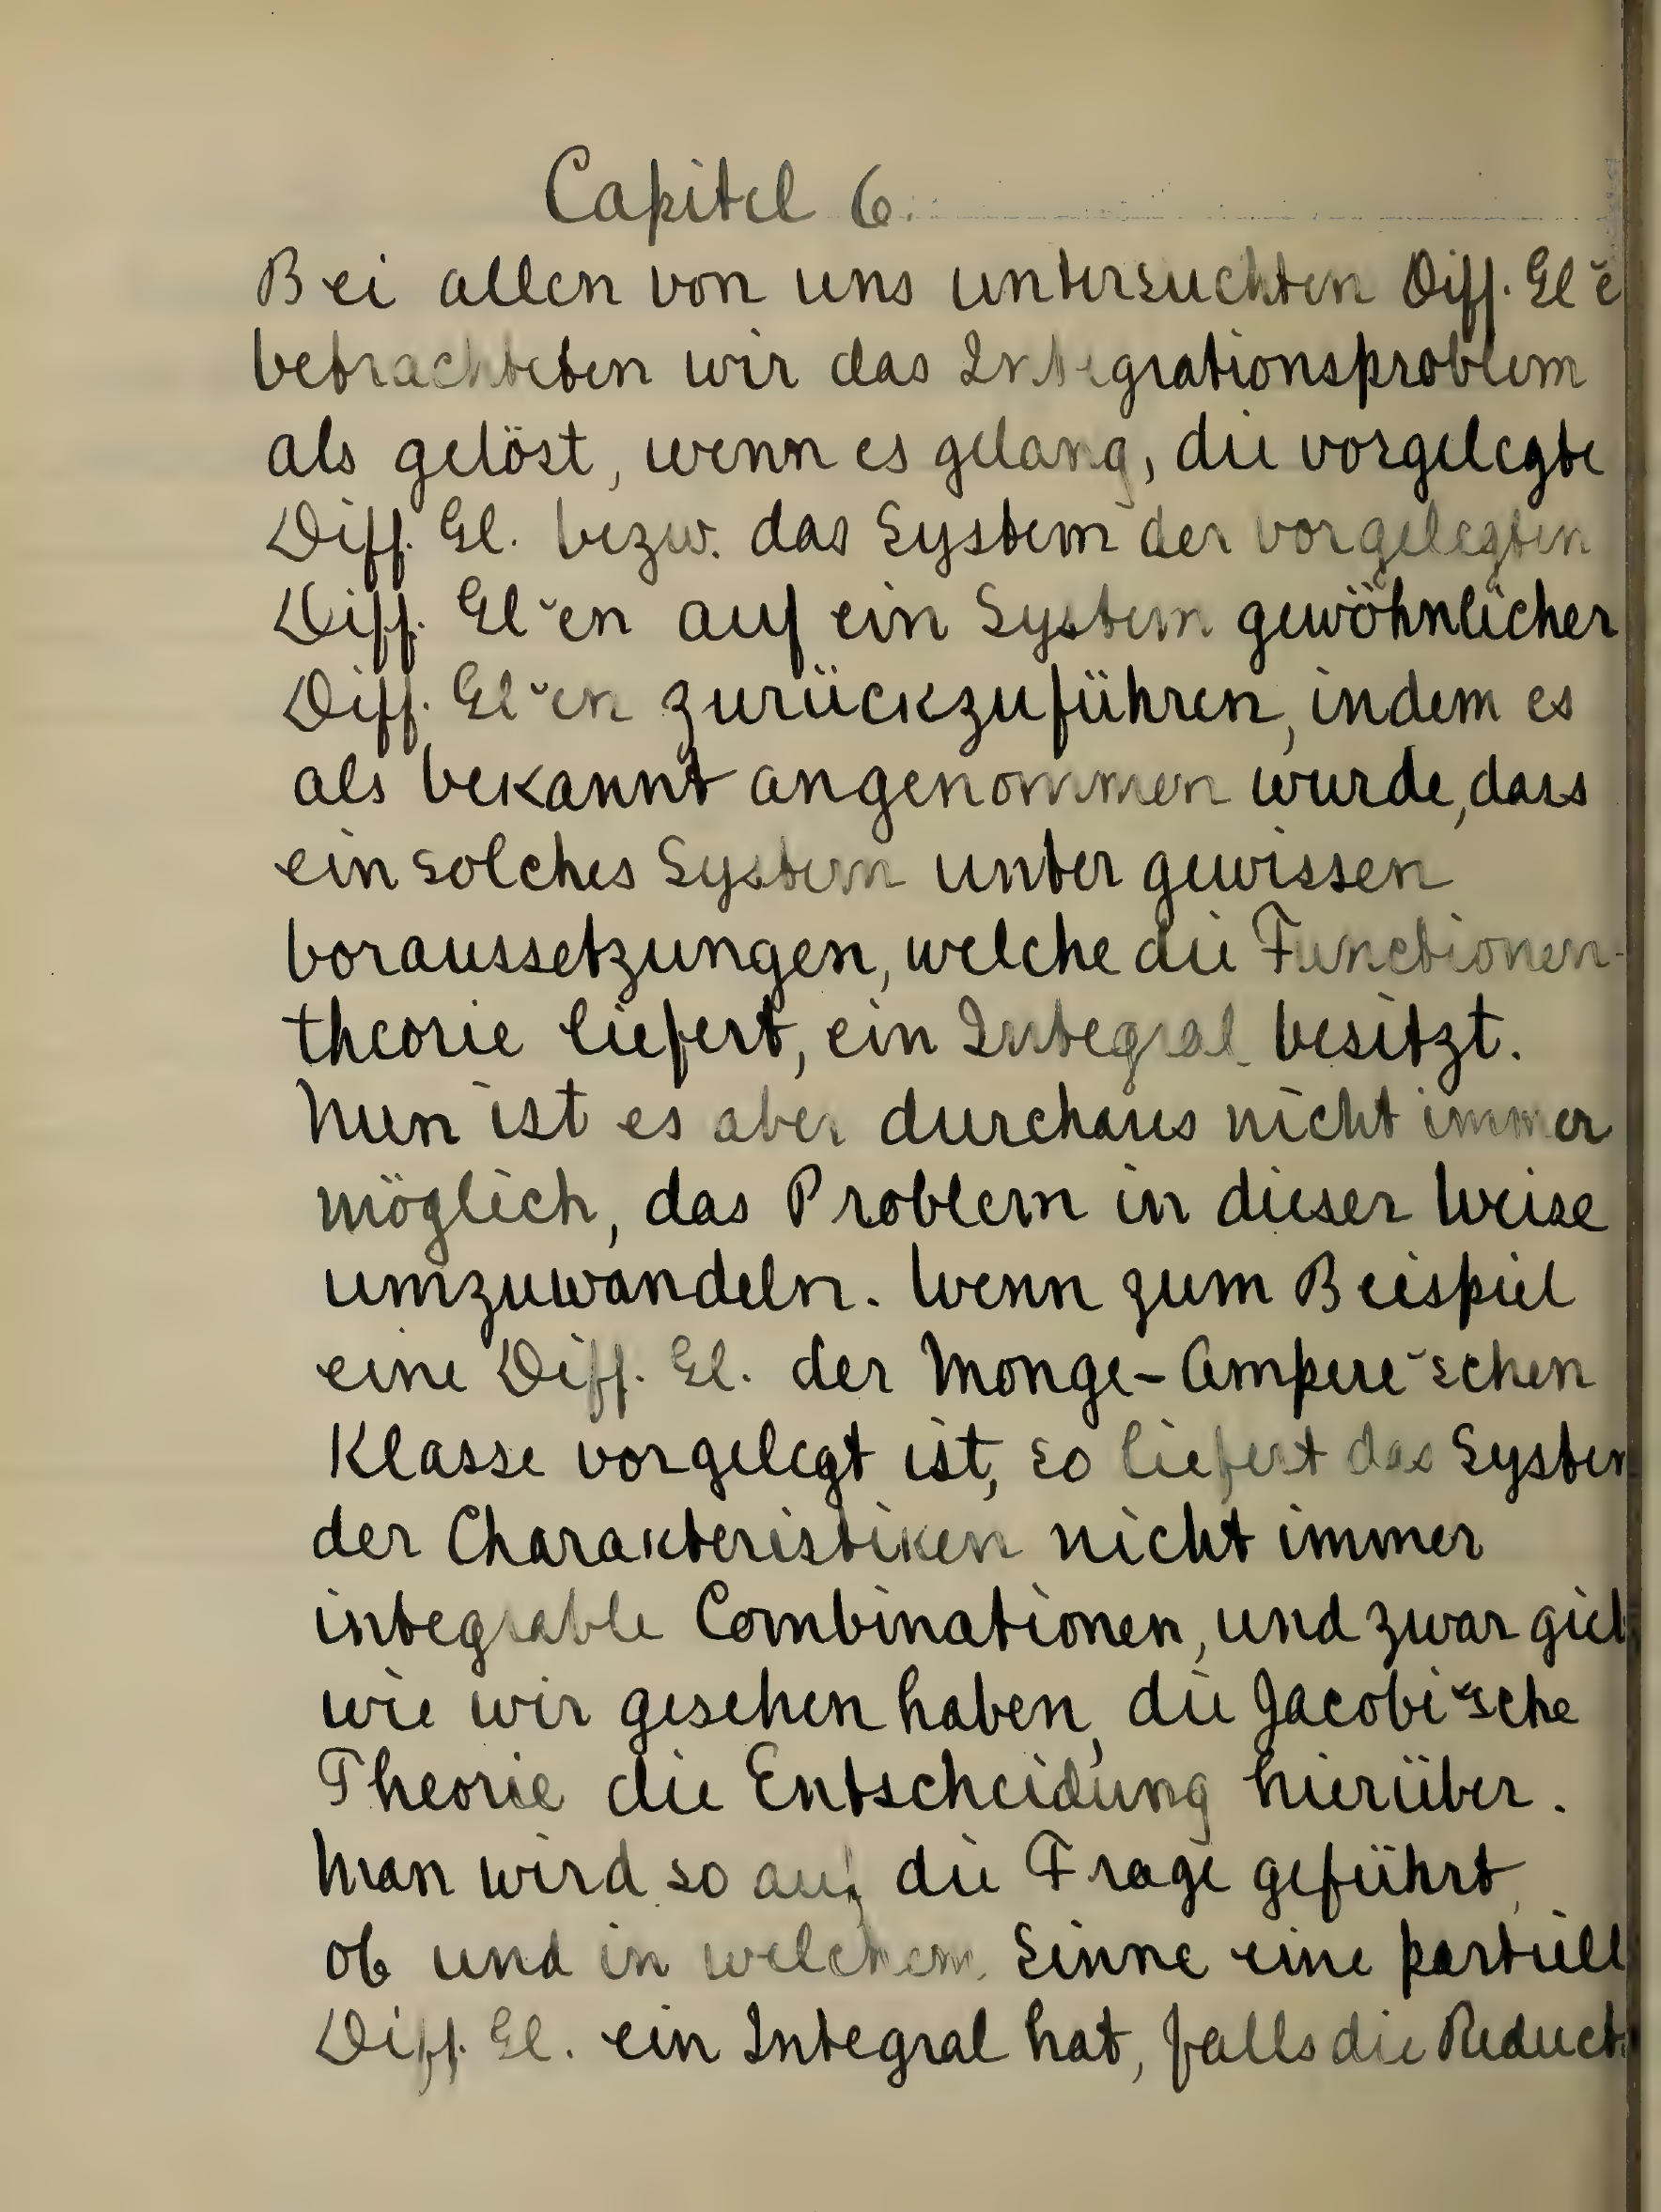 Capitel 6.
Bei allen von uns untersuchten Diff. Gl˘e
betrachteten wir das Integrationsproblem
als gelöst, wenn es gelang, die vorgelegte
Diff. Gl. bezw. das System der vorgelegten
Diff. Gl˘en auf ein System gewöhnlicher
Diff. Gl˘en zurückzuführen, indem es
als bekannt angenommen wurde, dass
ein solches System unter gewissen
Voraussetzungen, welche die Functionen-
theorie liefert, ein Integral besitzt.
Nun ist es aber durchaus nicht immer
möglich, das Problem in dieser Weise
umzuwandeln. Wenn zum Beispiel
eine Diff. Gl. der Monge-Ampere˘schen
Klasse vorgelegt ist, so liefert das System
der Charakteristiken nicht immer
integrable Combinationen, und zwar gieb
wie wir gesehen haben, die Jacobi˘sche
Theorie die Entscheidung hierüber.
Man wird so auf die Frage geführt,
ob und in welchem Sinne eine partiell
Diff. Gl. ein Integral hat, falls die Reduct